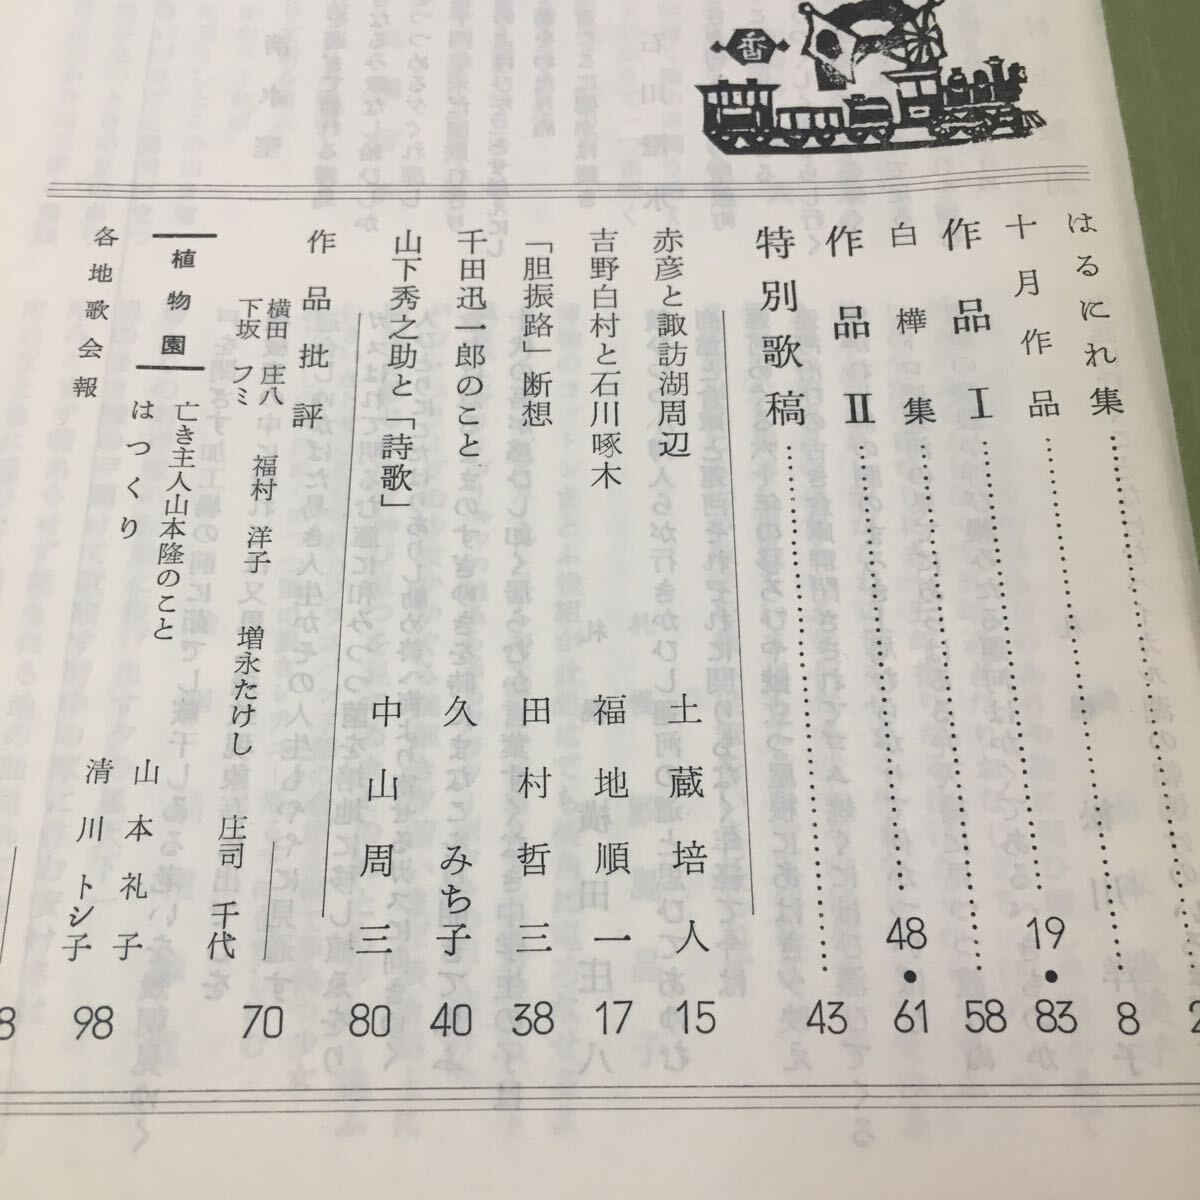 香
はるにれ集
十月作品 8
作品Ⅰ 19・83
白樺集 58
作品Ⅱ 48・61
特別歌稿 43
赤彦と諏訪湖周辺 土蔵培人 15
吉野白村と石川啄木 福地順一 17
「胆振路」断想 田村哲三 38
千田迅一郎のこと 久 みち子 40
山下秀之助と「詩歌」 中山周三 80
作品批評 70
横田 庄八
下坂 フミ
福村 洋子 増永たけし 庄司 千代
植物園
亡き主人山本隆のこと 山本礼子
はつくり 清川トシ子 98
各地歌会報